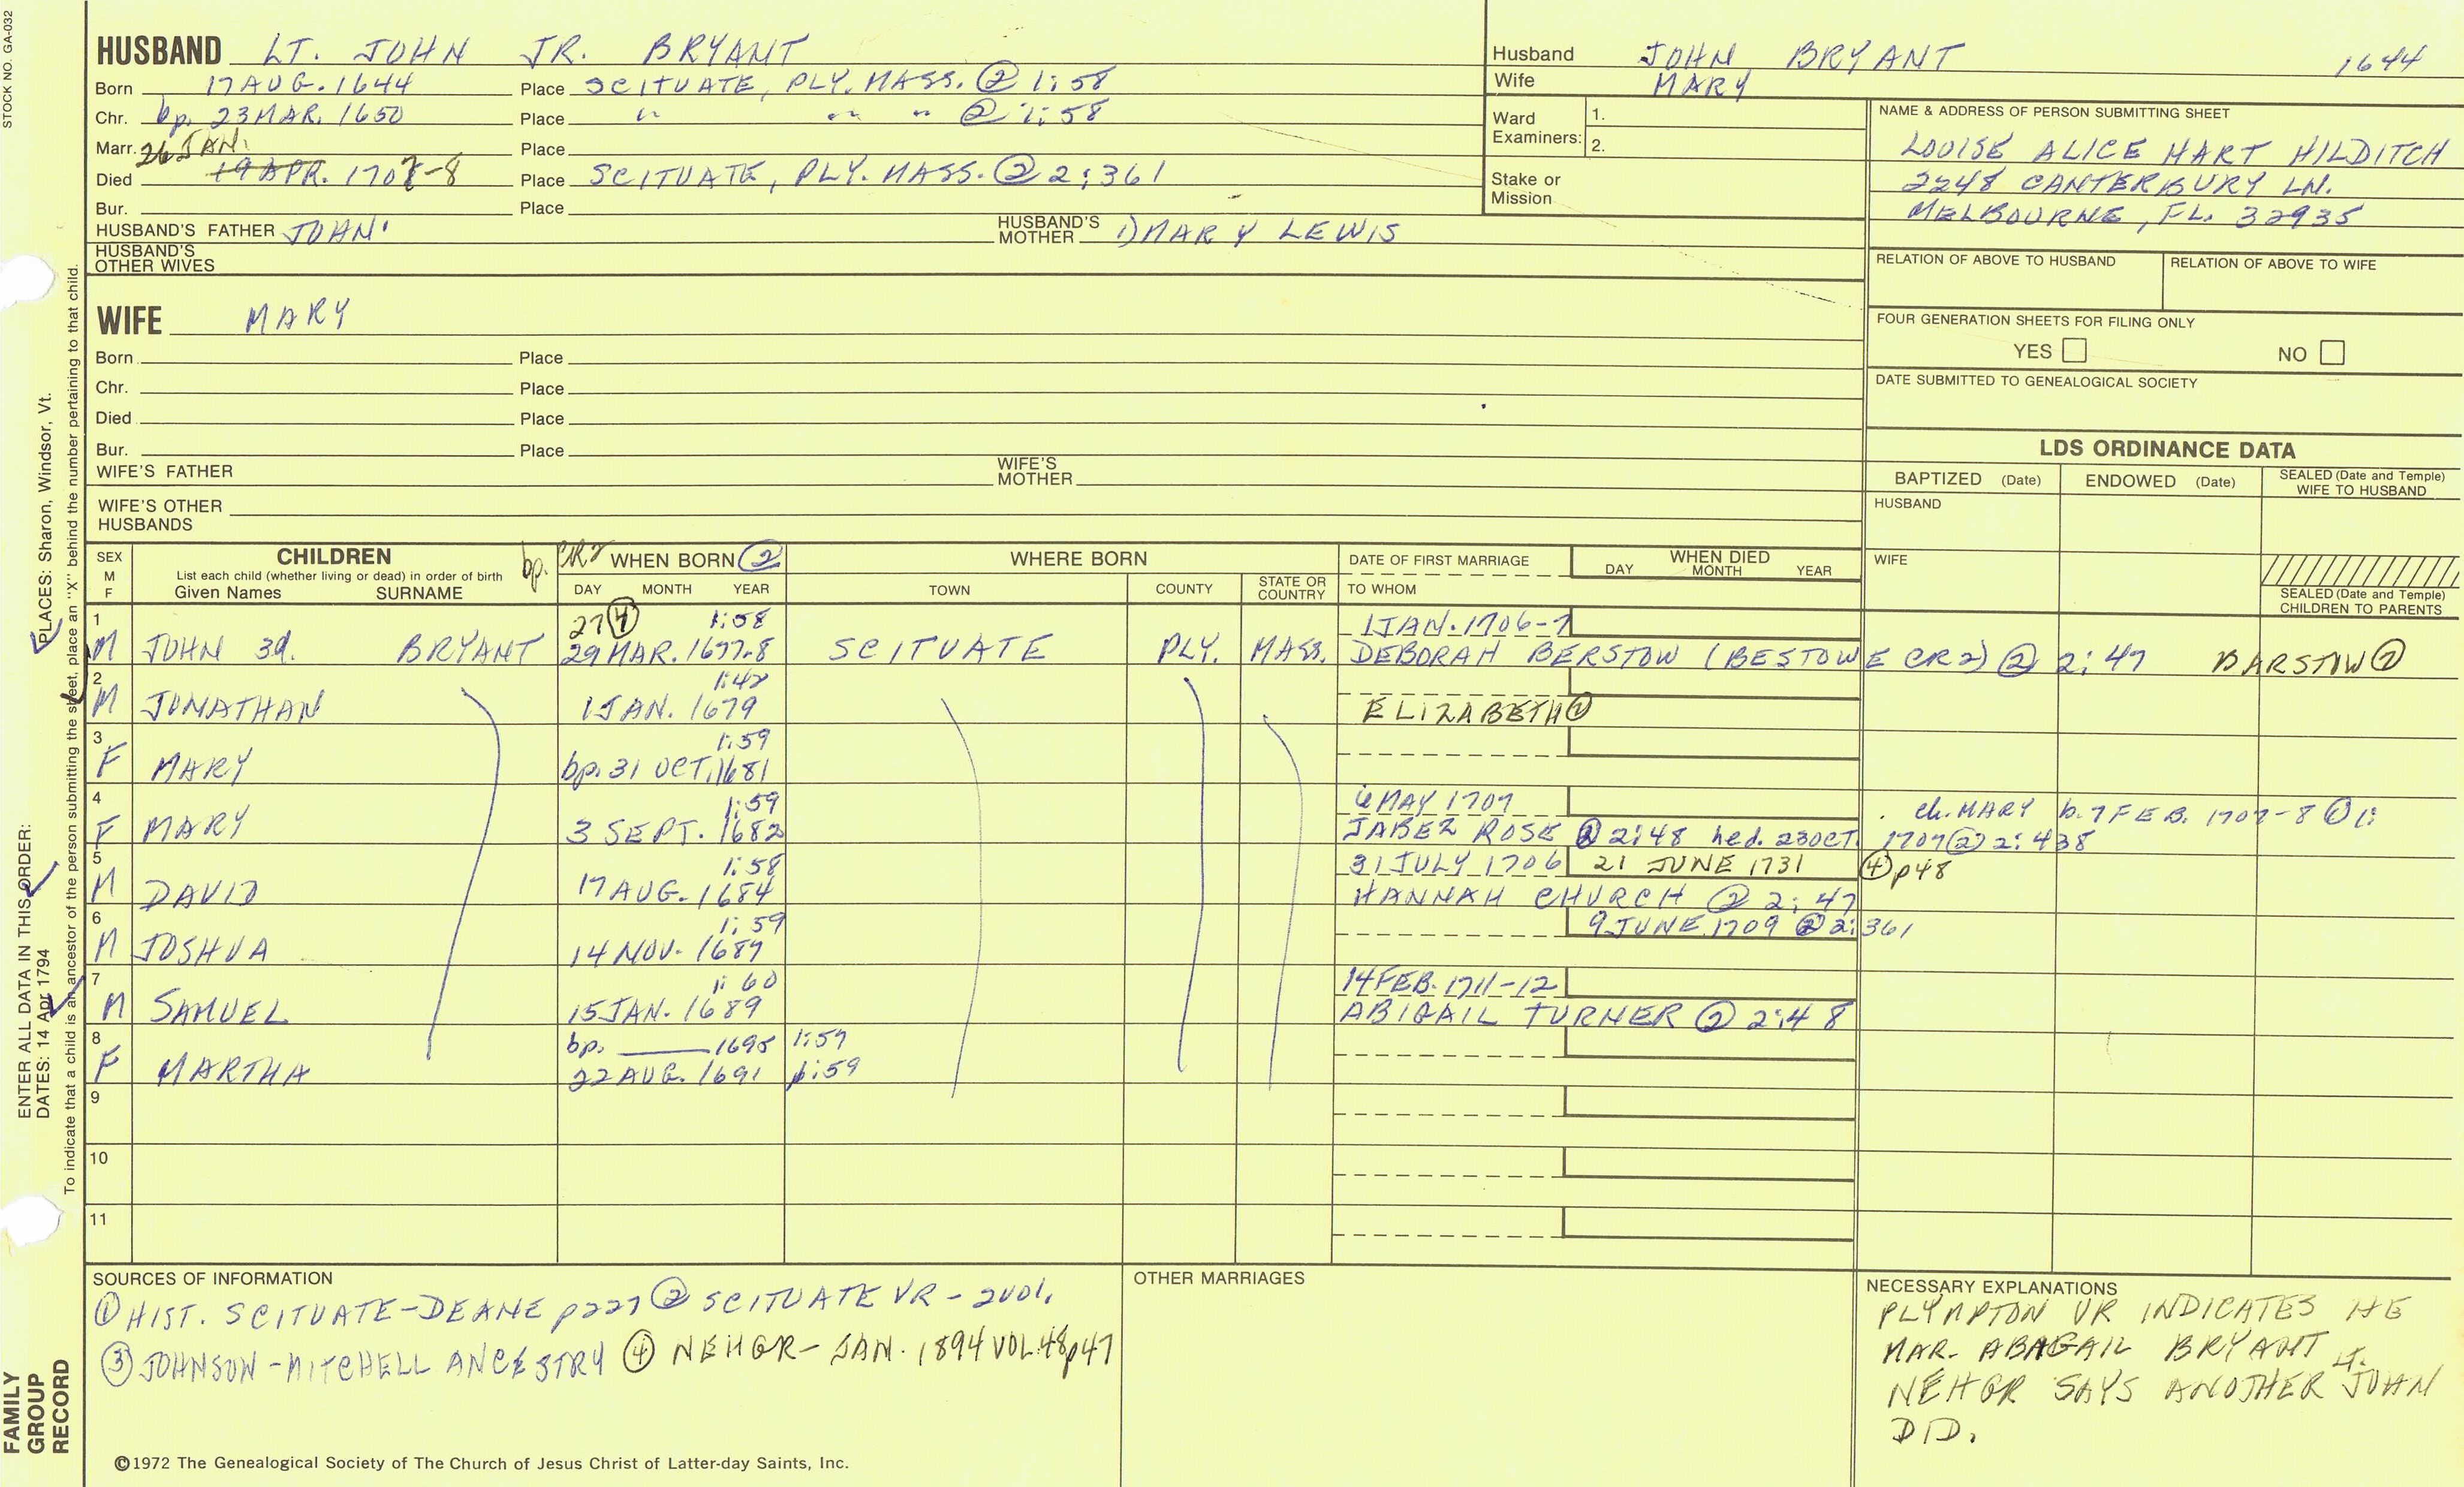 STOCK NO. GA-032
HUSBAND LT. JOHN JR. BRYANT
Born 17 AUG. 1644 Place SCITUATE, PLY. MASS. ② 1:58
Chr. bp. 23 MAR. 1650 Place " " " ② 1:58
Marr. Place
26 JAN.
Died 19 APR. 1707-8 Place SCITUATE, PLY. MASS. ② 2:361
Bur. Place
HUSBAND'S FATHER JOHN' HUSBAND'S MOTHER 1) MARY LEWIS
HUSBAND'S OTHER WIVES
WIFE MARY
Born Place
Chr. Place
Died Place
Bur. Place
WIFE'S FATHER WIFE'S MOTHER
WIFE'S OTHER HUSBANDS
Husband JOHN BRYANT 1644
Wife MARY
Ward Examiners: 1. 2.
Stake or Mission
NAME & ADDRESS OF PERSON SUBMITTING SHEET
LOUISE ALICE HART HILDITCH
2248 CANTERBURY LN.
MELBOURNE, FL. 32935
RELATION OF ABOVE TO HUSBAND RELATION OF ABOVE TO WIFE
FOUR GENERATION SHEETS FOR FILING ONLY
YES NO
DATE SUBMITTED TO GENEALOGICAL SOCIETY
LDS ORDINANCE DATA
BAPTIZED (Date) ENDOWED (Date) SEALED (Date and Temple) WIFE TO HUSBAND
HUSBAND
WIFE
SEALED (Date and Temple) CHILDREN TO PARENTS
SEX M F
CHILDREN
List each child (whether living or dead) in order of birth
Given Names SURNAME
bp. CR2 WHEN BORN ②
DAY MONTH YEAR
WHERE BORN
TOWN COUNTY STATE OR COUNTRY
DATE OF FIRST MARRIAGE
TO WHOM
WHEN DIED
DAY MONTH YEAR
1 27 ④ 1:58 1 JAN. 1706-7
M JOHN 3d. BRYANT 29 MAR. 1677-8 SCITUATE PLY. MASS. DEBORAH BERSTOW (BESTOWE CR2) ② 2:47 BARSTOW ②
2 1:42
M JONATHAN 1 JAN. 1679 ELIZABETH ②
3 1:59
F MARY bp. 31 OCT. 1681
4 1:59 6 MAY 1707 ch. MARY b. 7 FEB. 1707-8 ② 1:
F MARY 3 SEPT. 1682 JABEZ ROSE ② 2:48 hed. 23 OCT. 1707 ② 2:438
5 1:58 31 JULY 1706 21 JUNE 1731 ④ p48
M DAVID 17 AUG. 1684 HANNAH CHURCH ② 2:47
6 1:59 9 JUNE. 1709 ② 2:361
M JOSHUA 14 NOV. 1687
7 1:60 14 FEB. 1711-12
M SAMUEL 15 JAN. 1689 ABIGAIL TURNER ② 2:48
8 bp. 1695 1:59
F MARTHA 22 AUG. 1691 1:59
9
10
11
SOURCES OF INFORMATION
① HIST. SCITUATE-DEANE p227 ② SCITUATE VR - 2VOL.
③ JOHNSON-MITCHELL ANCESTRY ④ NEHGR - JAN. 1894 VOL.48 p47
OTHER MARRIAGES
NECESSARY EXPLANATIONS
PLYMPTON VR INDICATES HE
MAR. ABAGAIL BRYANT
NEHGR SAYS ANOTHER LT. JOHN
DID.
©1972 The Genealogical Society of The Church of Jesus Christ of Latter-day Saints, Inc.
FAMILY GROUP RECORD
ENTER ALL DATA IN THIS ORDER:
DATES: 14 Apr 1794
PLACES: Sharon, Windsor, Vt.
To indicate that a child is an ancestor of the person submitting the sheet, place an "X" behind the number pertaining to that child.